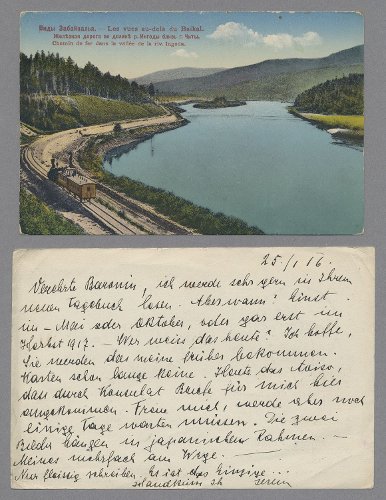 Виды Забайкалья. – Les vues au-delà du Baikal.
Желѣзная дорога въ долинѣ р. Ингоды близъ г. Читы.
Chemin de fer dans la vallée de la riv. Ingoda.
25/I 16.
Verehrte Baronin, ich werde sehr gern in Ihrem
neuen Tagebuch lesen. Aber wann? Einst
im – Mai oder Oktober, oder gar erst im
Herbst 1917. – Wer weiss das heute? Ich hoffe,
Sie werden das meine früher bekommen.
Karten schon lange keine. Heute das Aviso,
dass durch Konsulat Briefe für mich hier
angekommen. Freue mich, werde aber noch
einige Tage warten müssen. Die zwei
Bilder hängen in japanischen Rahmen. –
Meines mehrfach am Wege. –
Nur fleissig schreiben. Es ist das Einzige...